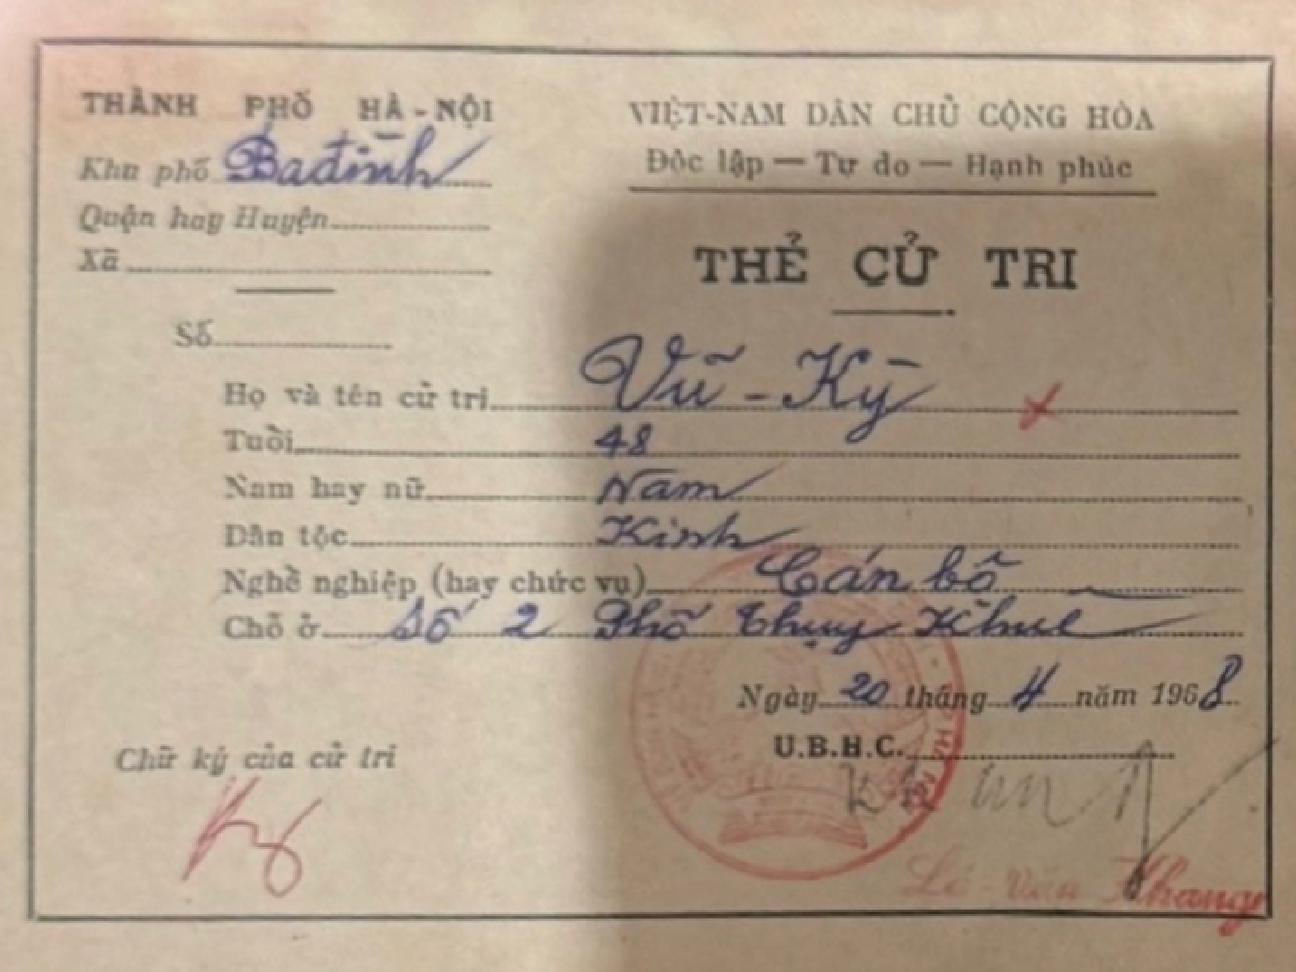 THÀNH PHỐ HÀ-NỘI
Khu phố Ba đình
Quận hay Huyện
Xã
VIỆT-NAM DÂN CHỦ CỘNG HÒA
Độc lập — Tự do — Hạnh phúc
THẺ CỬ TRI
Số
Họ và tên cử tri Vũ - Kỳ
Tuổi 48
Nam hay nữ Nam
Dân tộc Kinh
Nghề nghiệp (hay chức vụ) Cán bộ
Chỗ ở Số 2 Phố Thụy Khuê
Ngày 20 tháng 4 năm 1968
U.B.H.C.
Chữ ký của cử tri
Kỳ
Khang
Lê - Văn Khang